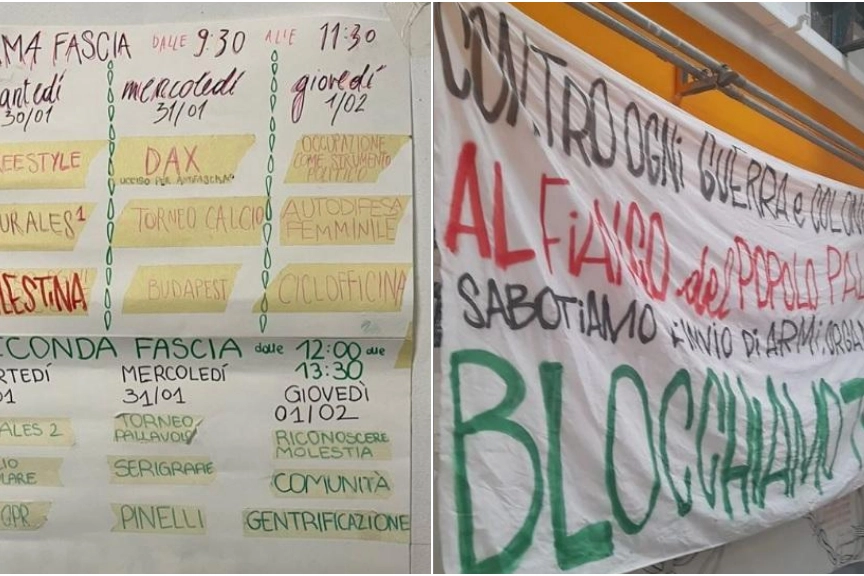 MA FASCIA DALLE 9:30 ALLE 11:30
artedí mercoledí giovedí
30/01 31/01 1/02
EESTYLE DAX OCCUPAZIONE
UCCISO PER ANTIFASCISMO COME STRUMENTO
POLITICO
URALES 1 TORNEO CALCIO AUTODIFESA
FEMMINILE
LESTINA BUDAPEST CICLOFFICINA
ECONDA FASCIA dalle 12:00 alle
13:30
RTEDÍ MERCOLEDÍ GIOVEDÌ
01 31/01 01/02
ALES 2 TORNEO RICONOSCERE
PALLAVOLO MOLESTIA
LIO SERIGRAFIE COMUNITÀ
LARE
GPR PINELLI GENTRIFICAZIONE
CONTRO OGNi GUERRA e COLON
AL FiANCO del POPOLO PAL
SABOTiAMO l'iNVIO Di ARMi. ORGA
BLOCCHIAMO T